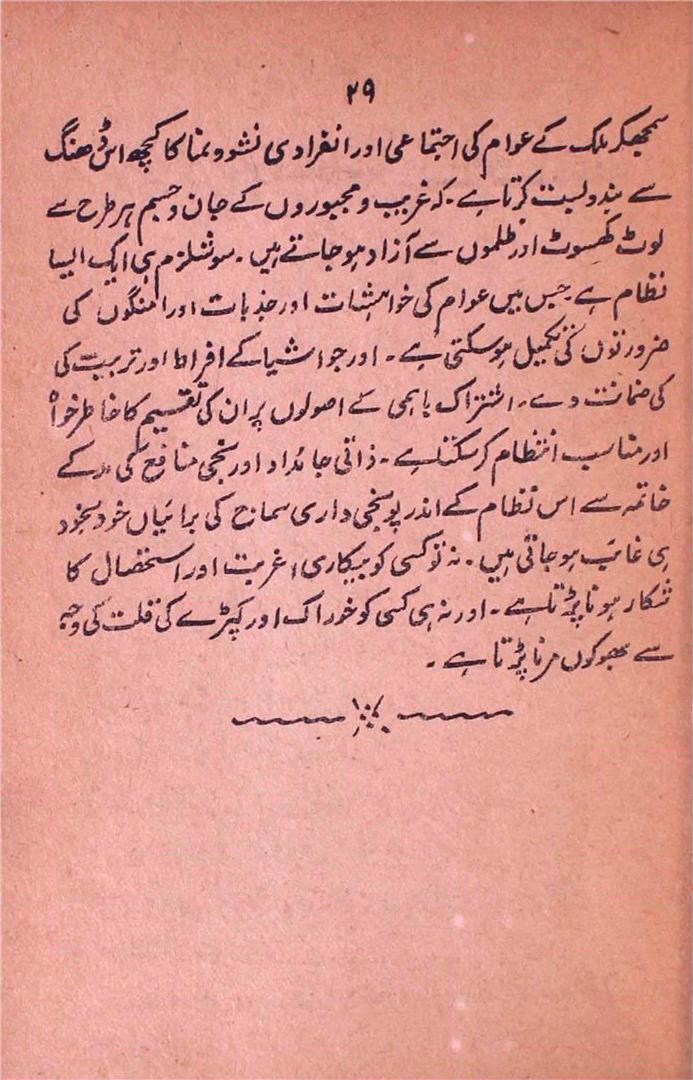 ۲۹
سمجھکر ملک کے عوام کی اجتماعی اور انفرادی نشوونما کا کچھ اس ڈھنگ
سے بندوبست کرتا ہے۔ کہ غریب و مجبوروں کے جان و جسم ہر طرح سے
لوٹ کھسوٹ اور ظلموں سے آزاد ہو جاتے ہیں۔ سوشلزم ہی ایک ایسا
نظام ہے جس میں عوام کی خواہشات اور جذبات اور امنگوں کی
ضرورتوں کی تکمیل ہو سکتی ہے۔ اور جو اشیا کے افراط اور تربیت کی
کی ضمانت دے۔ اشتراک باہمی کے اصولوں پر ان کی تقسیم کا خاطر خواہ
اور مناسب انتظام کر سکتا ہے۔ ذاتی جائداد اور نجی منافع کے
خاتمہ سے اس نظام کے اندر پونجی داری سماج کی برائیاں خود بخود
ہی غائب ہو جاتی ہیں۔ نہ تو کسی کو بیکاری، غربت اور استحصال کا
شکار ہونا پڑتا ہے۔ اور نہ ہی کسی کو خوراک اور کپڑے کی قلت کی وجہ
سے بھوکوں مرنا پڑتا ہے۔